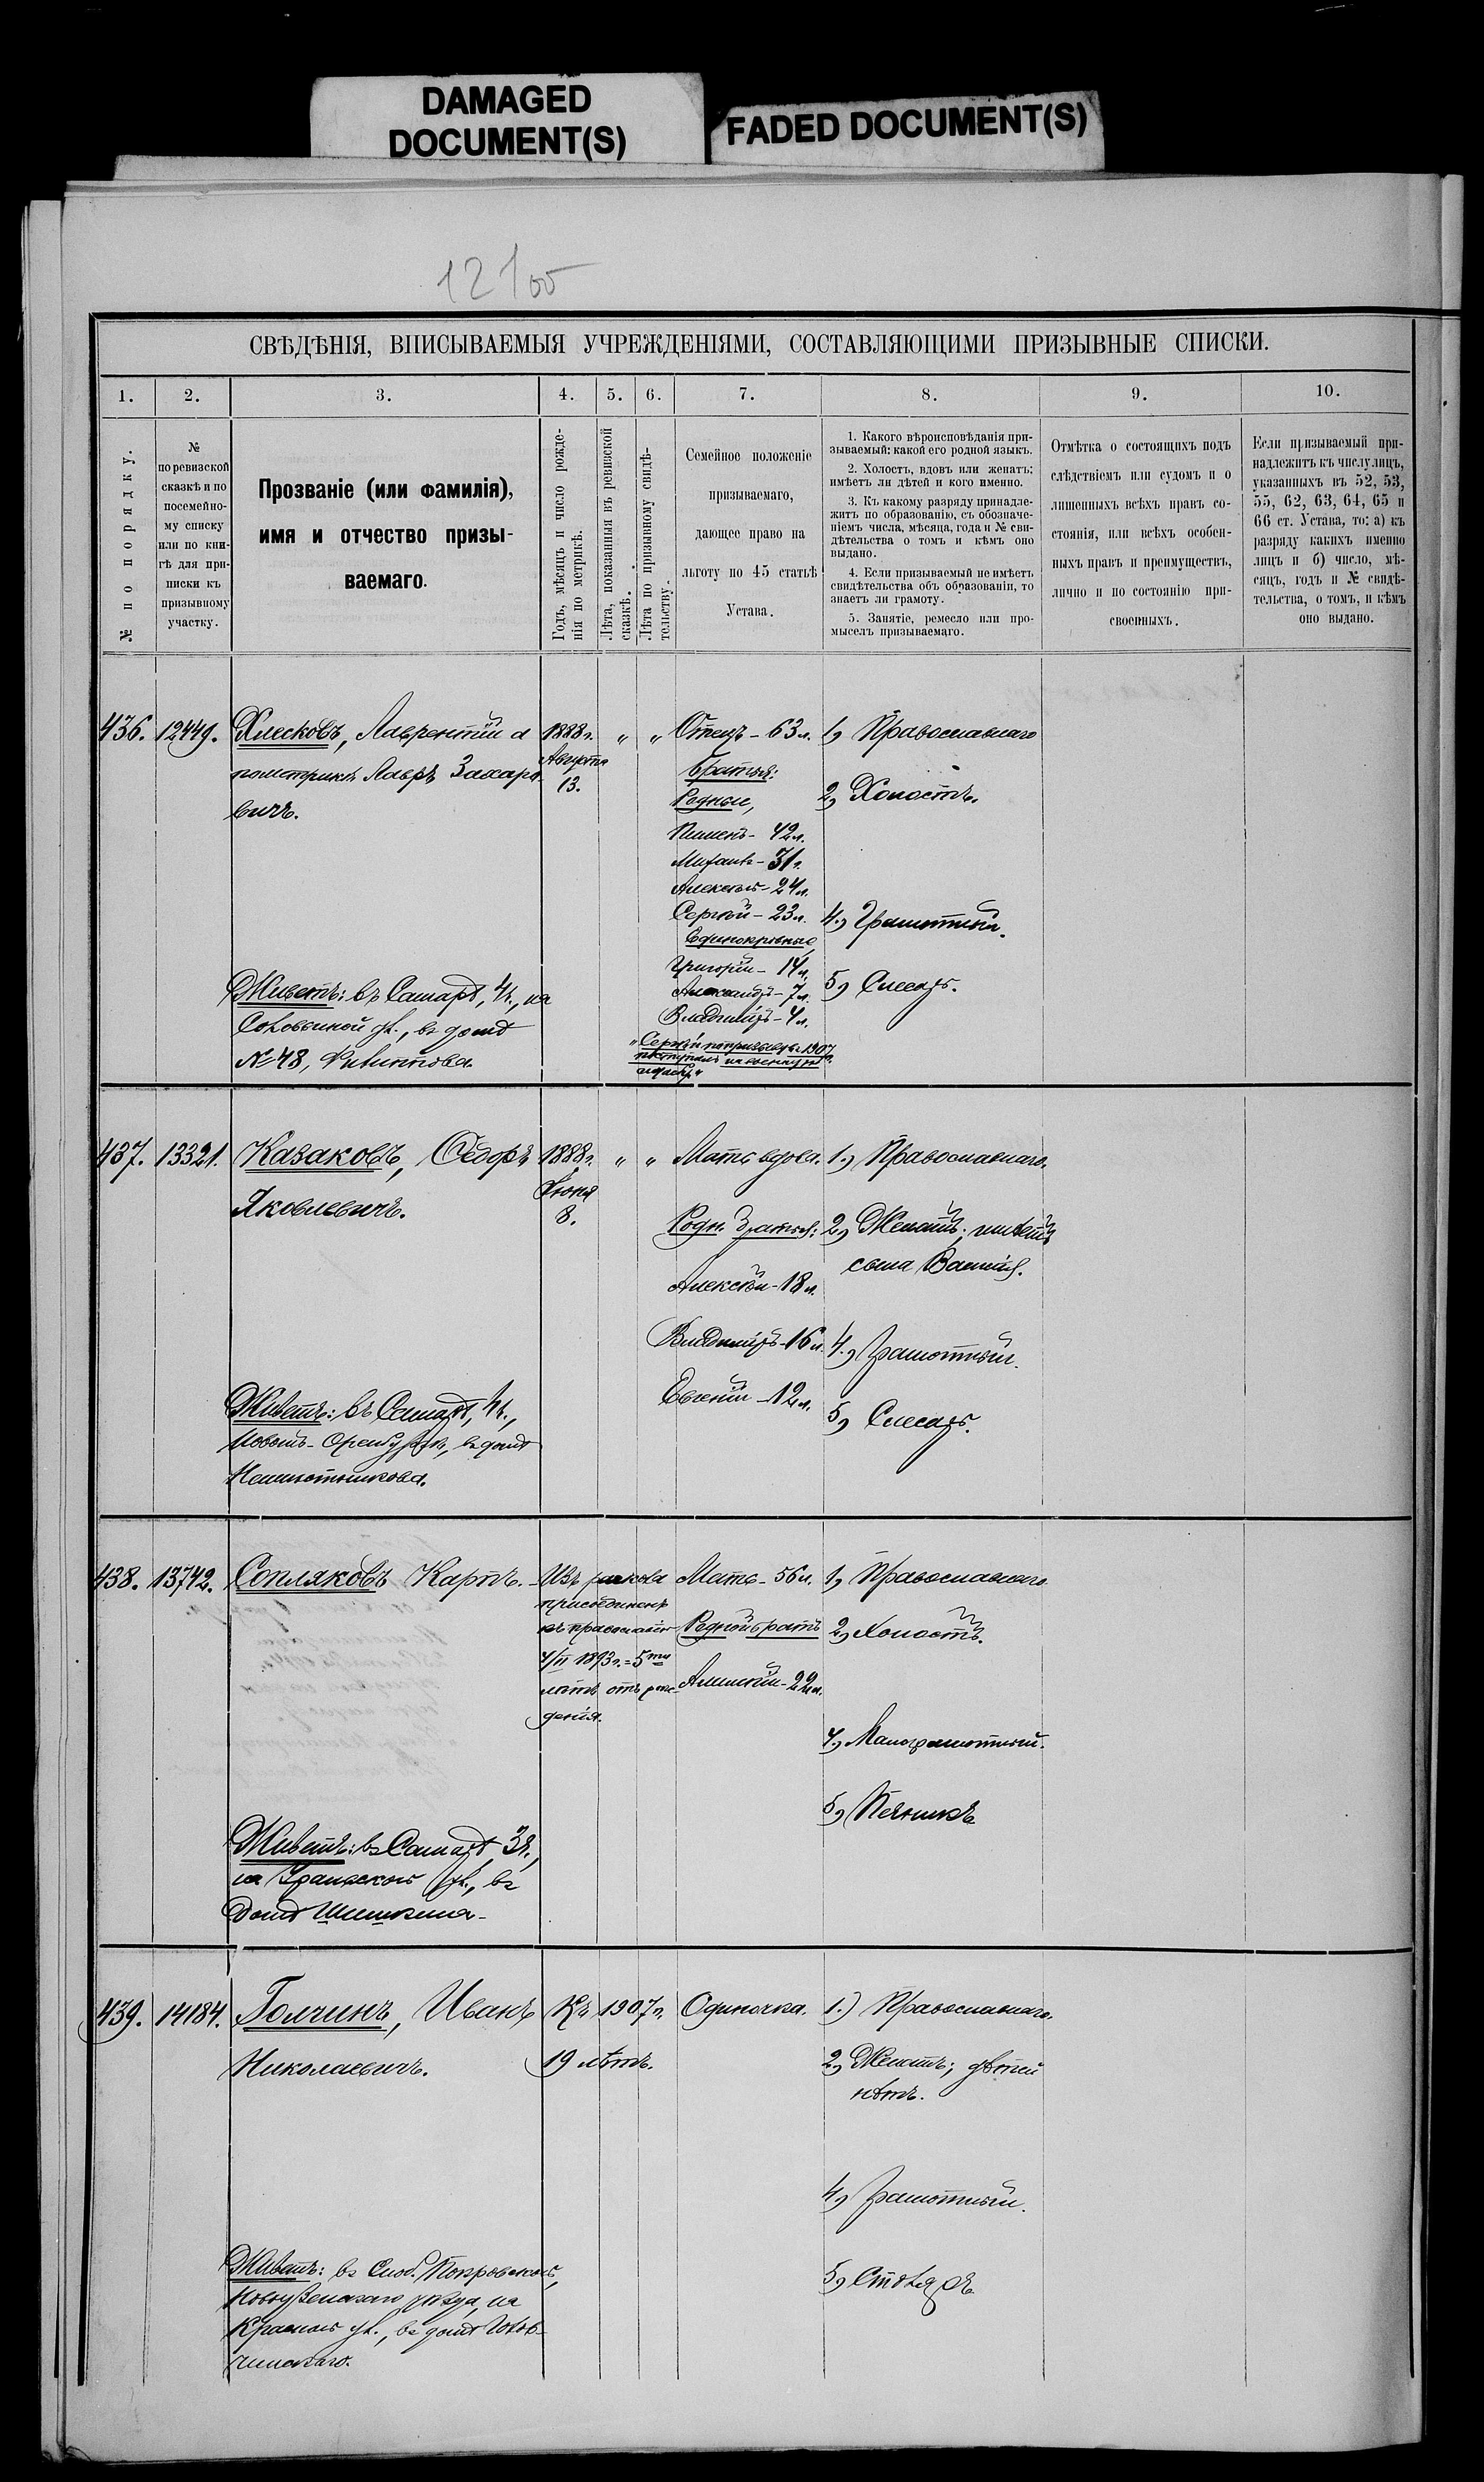 DAMAGED
DOCUMENT(S)
FADED DOCUMENT(S)
СВѢДѢНІЯ, ВПИСЫВАЕМЫЯ УЧРЕЖДЕНІЯМИ, СОСТАВЛЯЮЩИМИ ПРИЗЫВНЫЕ СПИСКИ.
1.
2.
3.
4.
5.
6.
7.
8.
9.
10.
№ по порядку.
№
по ревизской
сказкѣ и по
посемейно-
му списку
или по кни-
гѣ для при-
писки къ
призывному
участку.
Прозваніе (или фамилія),
имя и отчество призы-
ваемаго.
Годъ, мѣсяцъ и число рожде-
нія по метрикѣ.
Лѣта, показанныя въ ревизской
сказкѣ.
Лѣта по призывному свидѣ-
тельству.
Семейное положеніе
призываемаго,
дающее право на
льготу по 45 статьѣ
Устава.
1. Какого вѣроисповѣданія при-
зываемый: какой его родной языкъ.
2. Холостъ, вдовъ или женатъ;
имѣетъ ли дѣтей и кого именно.
3. Къ какому разряду принадле-
житъ по образованію, съ обозначе-
ніемъ числа, мѣсяца, года и № сви-
дѣтельства о томъ и кѣмъ оно
выдано.
4. Если призываемый не имѣетъ
свидѣтельства объ образованіи, то
знаетъ ли грамоту.
5. Занятіе, ремесло или про-
мыселъ призываемаго.
Отмѣтка о состоящихъ подъ
слѣдствіемъ или судомъ и о
лишенныхъ всѣхъ правъ со-
стоянія, или всѣхъ особен-
ныхъ правъ и преимуществъ,
лично и по состоянію при-
своенныхъ.
Если призываемый при-
надлежитъ къ числу лицъ,
указанныхъ въ 52, 53,
55, 62, 63, 64, 65 и
66 ст. Устава, то: а) къ
разряду какихъ именно
лицъ и б) число, мѣ-
сяцъ, годъ и № свидѣ-
тельства, о томъ, и кѣмъ
оно выдано.
436.
12449.
Хлесковъ, Лаврентій а
пометрикѣ Лавръ Захаро-
вичъ.
Живетъ: въ Самарѣ, 4ч., на
Соловьиной ул., въ домѣ
№ 48, Филиппова.
1888г.
Августа
13.
"
"
Отецъ - 63л.
Братья:
Родные,
Пименъ - 42л.
Михаилъ - 31г.
Алексѣй - 24л.
Сергѣй - 23л.
Единокровные,
Григорій - 14л.
Александръ - 7л.
Владиміръ - 4л.
1, Православнаго
2, Холостъ.
4., Грамотный.
5, Слесарь.
437.
13321.
Казаковъ, Ѳедоръ
Яковлевичъ.
Живетъ: въ Самарѣ, 4ч.,
Новомъ-Оренбургѣ, въ домѣ
1888г.
Іюня
8.
"
"
Мать вдова.
Родн. братья:
Алексѣй - 18л.
Владиміръ - 16л.
Евгеній - 12л.
1., Православнаго.
2, Женатъ; имѣетъ
сына Василія.
4., Грамотный.
5, Слесарь.
438.
13742.
Сопляковъ Карпъ.
Живетъ: въ Самарѣ, 3ч.,
на Уральской ул., въ
домѣ Шишкина.
Изъ раскола
присоединенъ
къ православію
4/II 1893г. = 5ти
лѣтъ отъ рож-
денія.
Мать - 56л.
Родной братъ
22л.
1, Православнаго
2, Холостъ.
4, Малограмотный.
5, Печникъ
439.
14184.
Голчинъ, Иванъ
Николаевичъ.
Живетъ: въ Слоб. Покровской,
Новоузенскаго уѣзда, на
Красной ул., въ домѣ Голов-
чинскаго.
Къ 1907г.
19 лѣтъ.
Одиночка.
1.) Православнаго.
2, Женатъ; дѣтей
нѣтъ.
4, Грамотный.
5, Столяръ